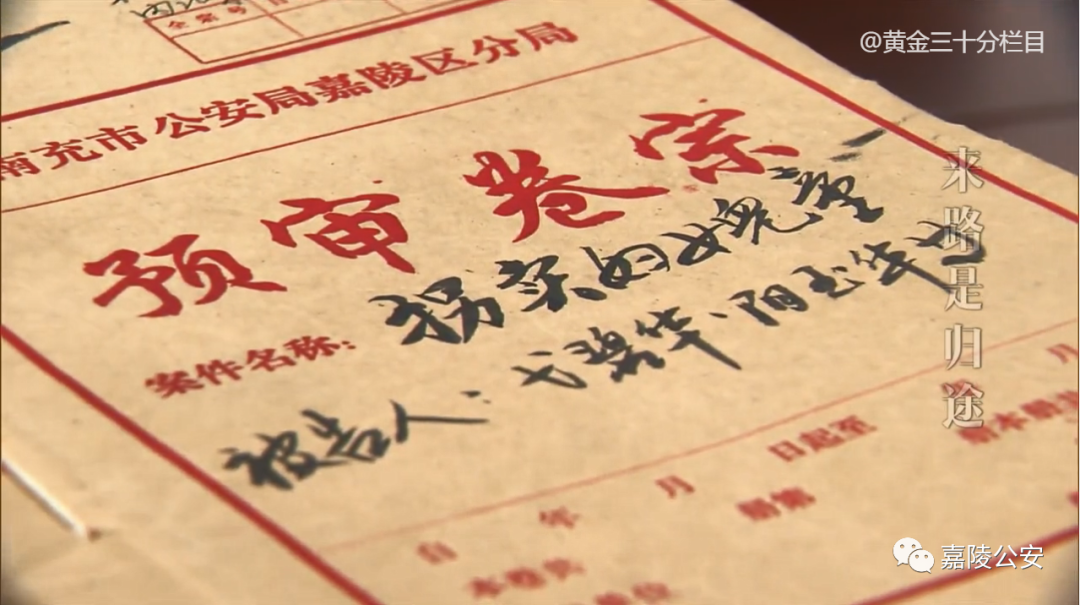 @黄金三十分栏目
全案号
南充市公安局嘉陵区分局
预审卷宗
案件名称:拐卖妇女儿童
被告人:弋碧华、阳玉华
来路是归途
自 年 月 日起至 月
本卷共 册第
嘉陵公安